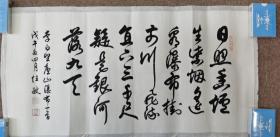 日照香爐
生紫烟遥
看瀑布掛
前川飛流
直下三千尺
疑是銀河
落九天
李白望廬山瀑布一首
戊午年四月任敏